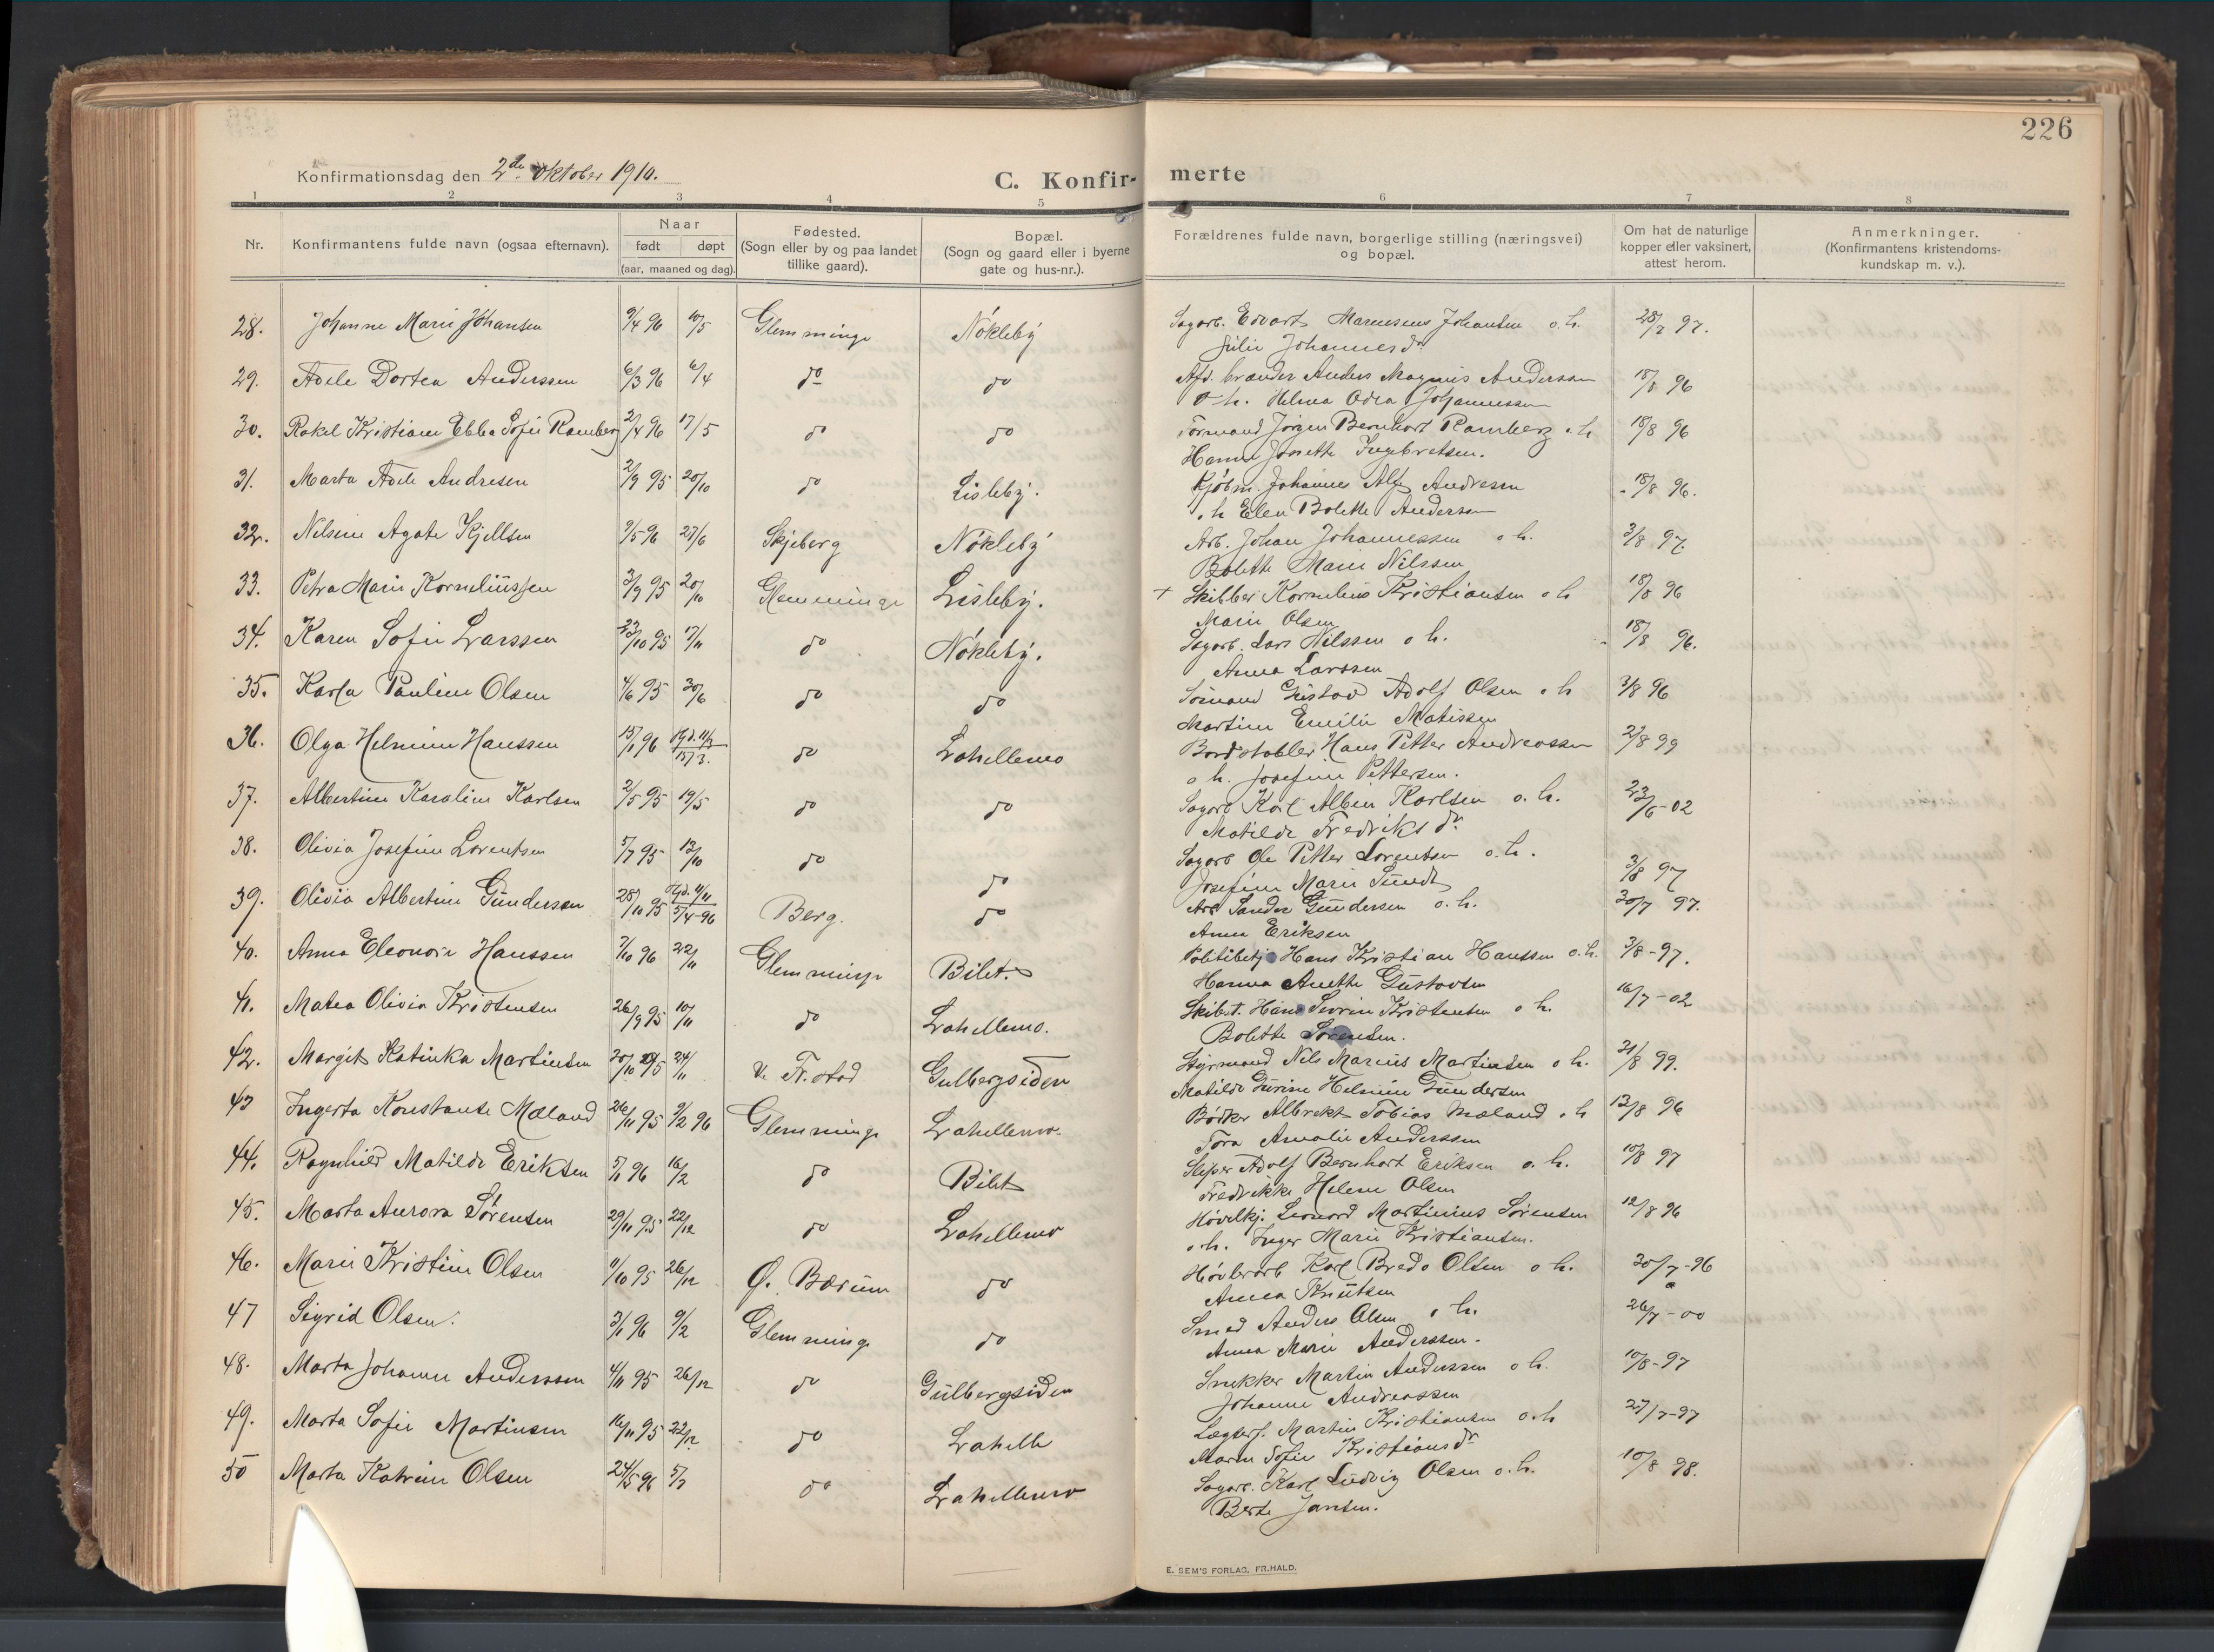 226
Konfirmationsdag den 2den oktober 1910.
C. Konfir-merte
1 2 3 4 5 6 7 8
Nr.
Konfirmantens fulde navn (ogsaa efternavn).
Naar
født døpt
(aar, maaned og dag).
Fødested.
(Sogn eller by og paa landet
tillike gaard).
Bopæl.
(Sogn og gaard eller i byerne
gate og hus-nr.).
Forældrenes fulde navn, borgerlige stilling (næringsvei)
og bopæl.
Om hat de naturlige
kopper eller vaksinert,
attest herom.
Anmerkninger.
(Konfirmantens kristendoms-
kundskap m. v.).
28. Johanne Marie Johansen 9/4 96 10/5 Glemminge Nökleby Sagarb. Edvart Johansen o. h. 28/7 97.
Julie Johannesdr
29. Adele Dortea Anderssen 6/3 96 6/4 do do Afd. brænder Anders Magnus Anderssen 18/8 96
o h. Helma Odea Johannessen
30. Rakel Kristiane Ebba Sofie Ramberg 2/4 96 17/5 do do Formand Jørgen Bernhart Ramberg o h 18/8 96
Hanna Josette Ingebretsen.
31. Marta Adele Andresen 2/9 95 20/10 do Lisleby. Kjøbm. Johannes Alf Andresen - 18/8 96.
o h Elen Bolette Andersen
32. Nilsine Agate Kjellsen 9/5 96 27/6 Skjeberg Nökleby Arb. Johan Johannessen o h. 3/8 97.
Bolette Marie Nilssen
33. Petra Marie Korneliussen 3/9 95 20/10 Glemminge Lisleby. + Skibber Kornelius Kristiansen o h 18/8 96
Marie Olsen
34. Karen Sofie Larssen 23/10 95 17/11 do Nökleby. Sagarb. Lars Nilssen o h. 18/8 96.
Anna Larssen
35. Karla Pauline Olsen 4/6 95 30/6 do do Sömand Gustav Adolf Olsen o h 3/8 96
Martine Emilie Matissen
36. Olga Helmine Hanssen 15/1 96 Hjd. 11/3 15/3. do Lahellemo Bordstabler Hans Petter Andreassen 2/8 99
o h. Josefine Pettersen.
37. Albertine Karoline Karlsen 2/5 95 19/5 do do Sagarb Karl Albin Karlsen o. h. 23/6-02
Matilde Fredriksdr
38. Olivia Josefine Lorentsen 5/7 95 13/10 do do Sagarb Ole Petter Lorentsen o. h. 3/8 97
Josefine Marie Lundt
39. Olivia Albertine Gundersen 28/10 95 Hjd. 4/11 5/4-96 Berg. do Arb Sander Gundersen o. h. 30/7 97.
Anna Eriksen
40. Anna Eleonore Hanssen 7/10 96 22/11 Glemminge Bilet. Politibetj. Hans Kristian Hanssen o. h. 3/8-97.
Hanna Anette Gustavsen
41. Matea Olivia Kristensen 26/9 95 10/11 do Lahellemo. Skibst. Hans Severin Kristensen o h. 16/7-02
Bolette Sörensen.
42. Margit Katinka Martinsen 20/10 95 24/11 V. Fr.stad Gulbergsiden Styrmand Nils Marius Martinsen o h. 31/8 99.
Matilde Helmine Gundersen
43 Ingerta Konstanse Mæland 26/11 95 9/2 96 Glemminge Lahellemo. Bödker Albrekt Tobias Mæland o h 13/8 96
Tora Amalie Anderssen
44. Ragnhild Matilde Eriksen 5/1 96 16/2 do Bilet Sliper Adolf Bernhart Eriksen o. h. 10/8 97
Fredrikke Helene Olsen
45. Marta Aurora Sörensen 29/11 95 22/12 do Lahellemo Høvelkj. Leonard Martinius Sörensen 12/8 96
o h. Inger Marie Kristiansen.
46. Marie Kristine Olsen 11/10 95 26/12 Ø. Bærum do Høvlerarb Karl Bredo Olsen o h. 30/7-96
Anna Knutsen
47 Sigrid Olsen. 3/1 96 9/2 Glemminge do Smed Anders Olsen o h. 26/7-00
Anna Marie Anderssen.
48. Marta Johanne Anderssen 4/11 95 26/12 do Gulbergsiden Snekker Martin Anderssen o h. 10/8-97
Johanne Andreassen
49. Marta Sofie Martinsen 16/11 95 22/12 do Lahelle Martin Kristiansen o h 27/7-97
Maren Sofie Kristiansdr
50 Marta Katrine Olsen 24/5 96 5/7 do Lahellemo Sagarb. Karl Ludvig Olsen o. h. 10/8 98.
Berte Jansen.
E. SEM'S FORLAG, FR.HALD.